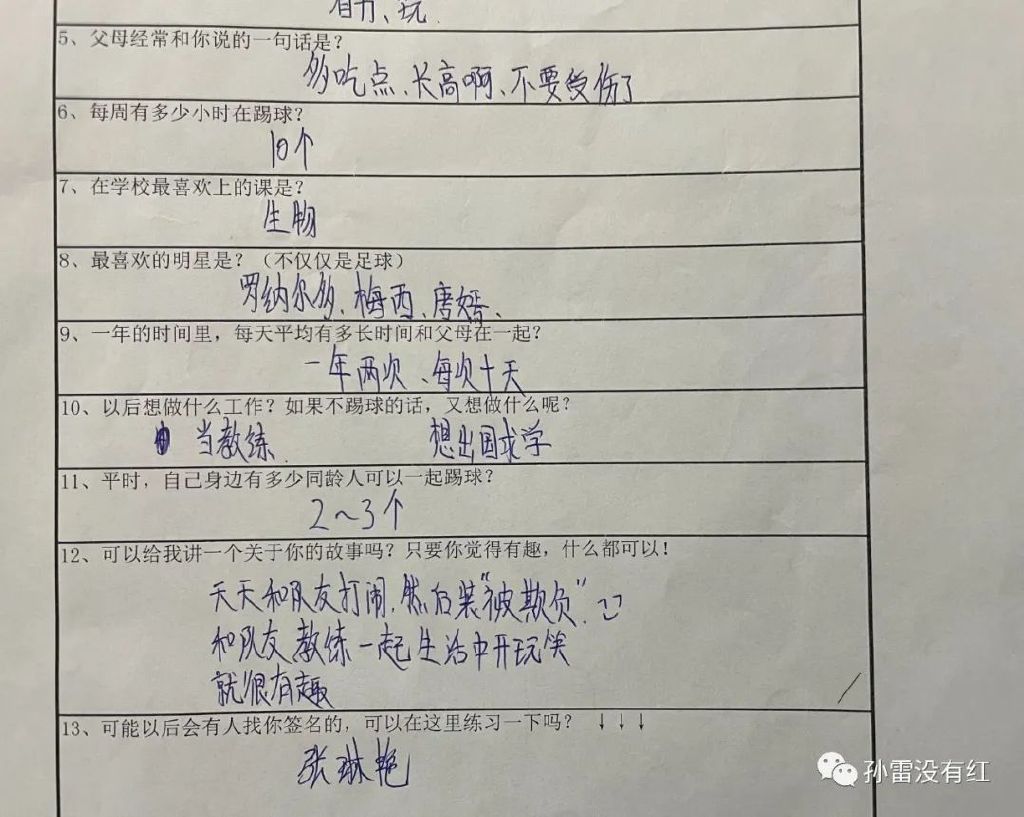 、玩
5、父母经常和你说的一句话是？
多吃点、长高啊、不要受伤了
6、每周有多少小时在踢球？
10个
7、在学校最喜欢上的课是？
生物
8、最喜欢的明星是？（不仅仅是足球）
罗纳尔多、梅西、唐嫣、
9、一年的时间里，每天平均有多长时间和父母在一起？
一年两次、每次十天
10、以后想做什么工作？如果不踢球的话，又想做什么呢？
当教练 想出国求学
11、平时，自己身边有多少同龄人可以一起踢球？
2～3个
12、可以给我讲一个关于你的故事吗？只要你觉得有趣，什么都可以！
天天和队友打闹，然后装“被欺负”.
和队友教练一起生活中开玩笑
就很有趣
13、可能以后会有人找你签名的，可以在这里练习一下吗？ ↓↓↓
张琳艳
孙雷没有红